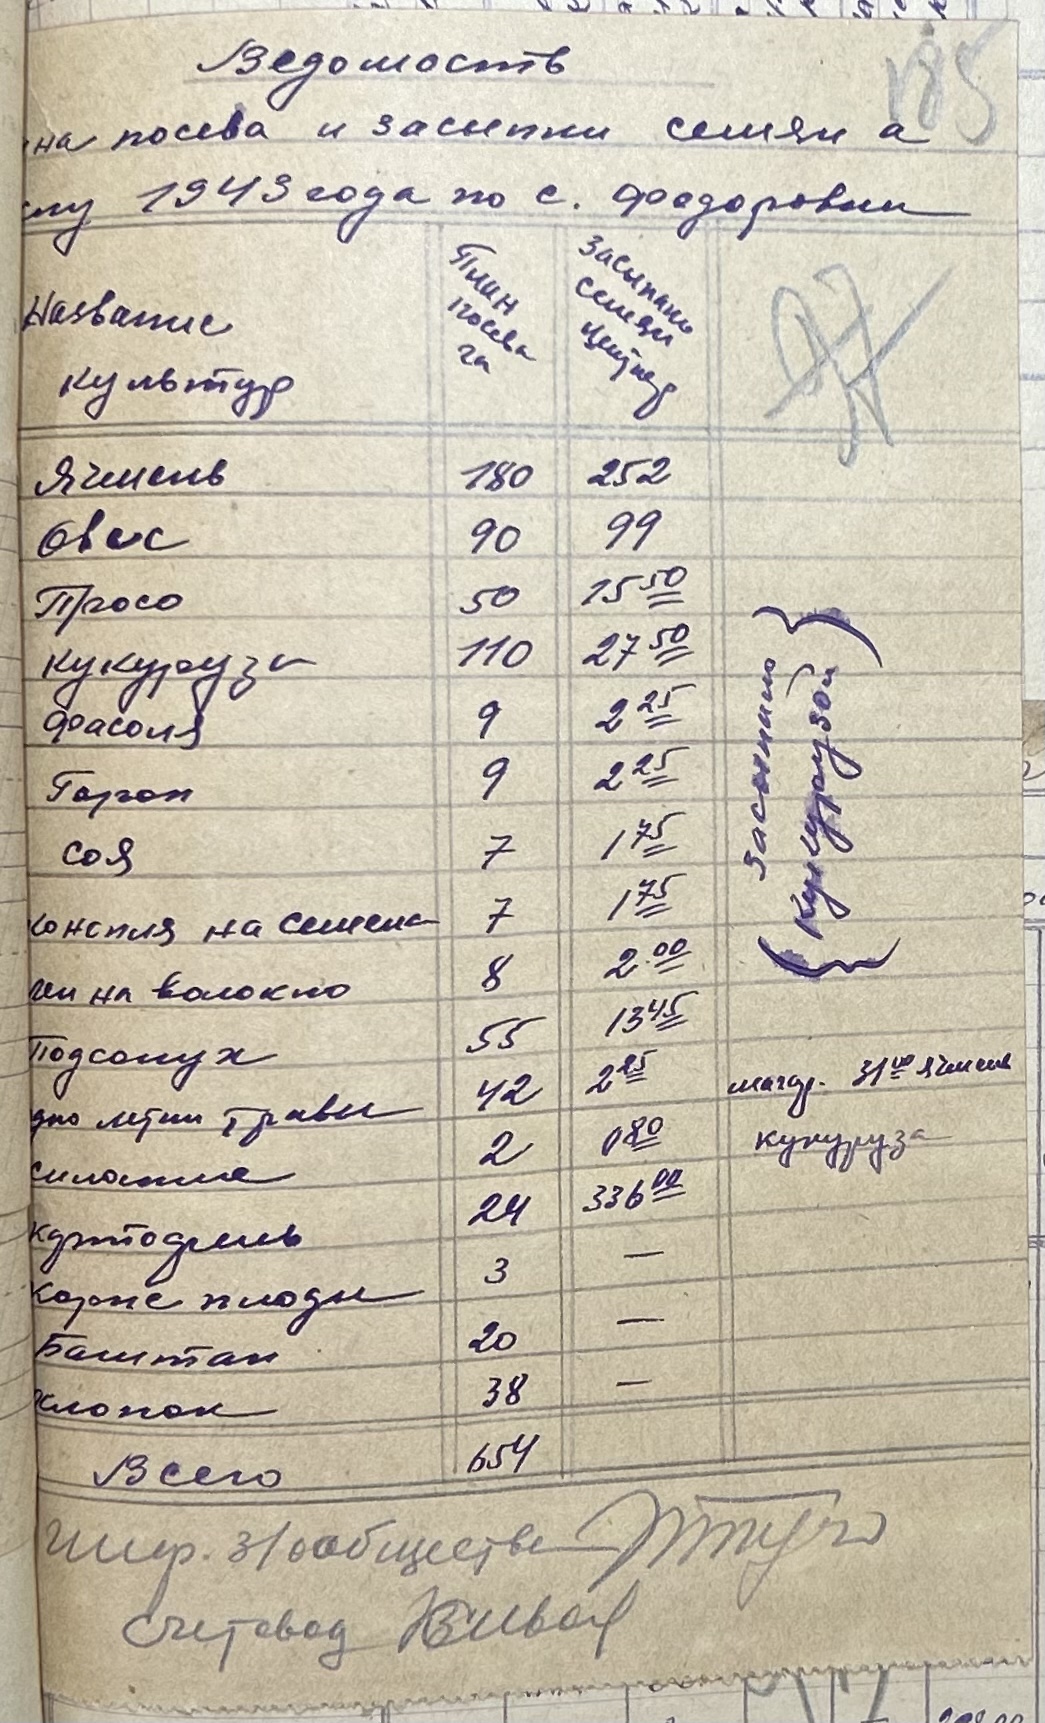 185
Ведомость
на посева и засыпки семян а
му 1943 года по с. Федоровки
Название культур План посева га Засыпано семян центнер
97
Ячмень 180 252
Овес 90 99
Просо 50 15 50
Кукуруза 110 27 50
Фасоля 9 2 25
Горох 9 2 25
Соя 7 1 75
конопля на семена 7 1 75
на волокно 8 2.00
Засыпано кукурузой
Подсолнух 55 13 45
дно летни травы 42 2 25 31 00 ячмень
силосные 2 0 80 кукуруза
картофель 24 336 00
Корне плоды 3 —
Баштан 20 —
хлопок 38 —
Всего 654
общества
Счетовод